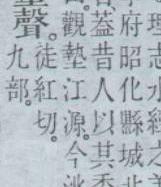 理志水經
府昭化縣城
蓋昔人以其
觀墊江源。今洮
聲。徒紅切。
九部。